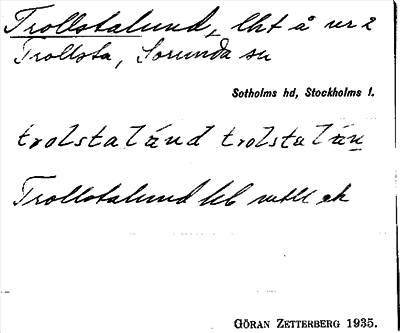 Trollstalund, lht å nr 2
Trollsta, Sorunda sn
Sotholms hd, Stockholms l.
trolstalánd trolstalán
Trollstalund hl ek
GÖRAN ZETTERBERG 1935.